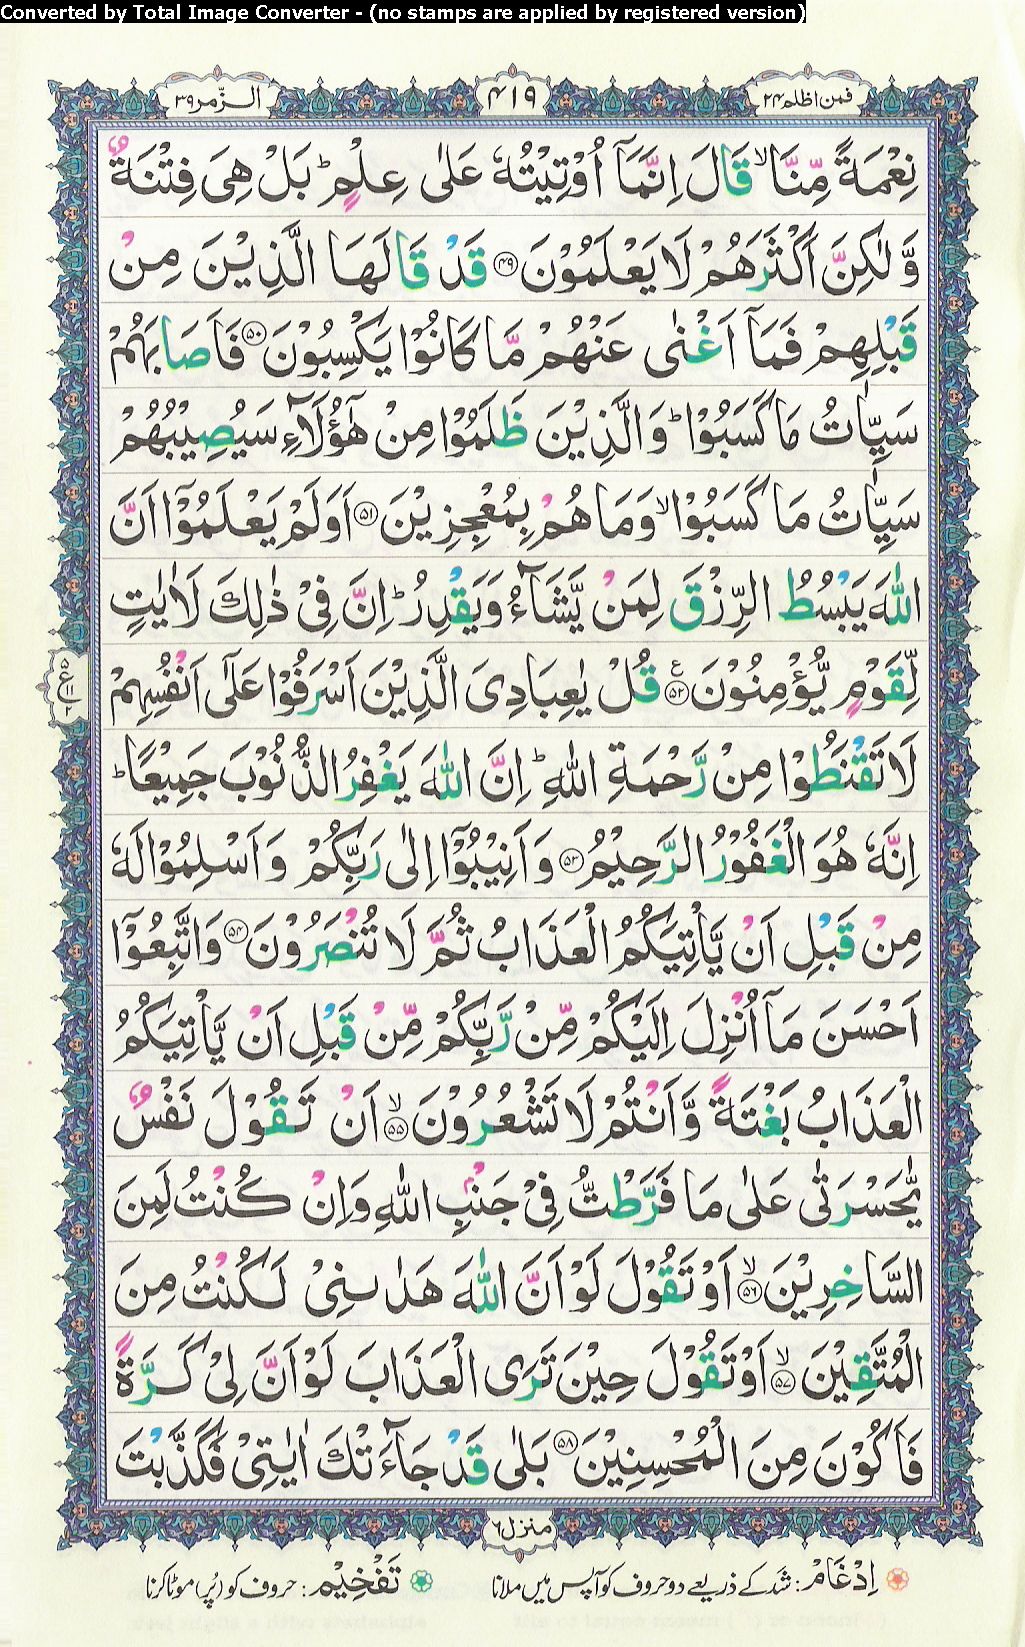 Converted by Total Image Converter - (no stamps are applied by registered version)
فمن اظلم ٢٤
٤١٩
الزّمر ٣٩
نِعْمَةً مِّنَّا ۙ قَالَ اِنَّمَاۤ اُوْتِیْتُهٗ عَلٰی عِلْمٍ ؕ بَلْ هِیَ فِتْنَةٌ
وَّ لٰكِنَّ اَكْثَرَهُمْ لَا یَعْلَمُوْنَ ﴿۴۹﴾ قَدْ قَالَهَا الَّذِیْنَ مِنْ
قَبْلِهِمْ فَمَاۤ اَغْنٰی عَنْهُمْ مَّا كَانُوْا یَكْسِبُوْنَ ﴿۵۰﴾ فَاَصَابَهُمْ
سَیِّاٰتُ مَا كَسَبُوْا ؕ وَ الَّذِیْنَ ظَلَمُوْا مِنْ هٰۤؤُلَآءِ سَیُصِیْبُهُمْ
سَیِّاٰتُ مَا كَسَبُوْا ۙ وَ مَا هُمْ بِمُعْجِزِیْنَ ﴿۵۱﴾ اَوَلَمْ یَعْلَمُوْۤا اَنَّ
اللّٰهَ یَبْسُطُ الرِّزْقَ لِمَنْ یَّشَآءُ وَ یَقْدِرُ ؕ اِنَّ فِیْ ذٰلِكَ لَاٰیٰتٍ
لِّقَوْمٍ یُّؤْمِنُوْنَ ﴿۵۲﴾ ع قُلْ یٰعِبَادِیَ الَّذِیْنَ اَسْرَفُوْا عَلٰۤی اَنْفُسِهِمْ
لَا تَقْنَطُوْا مِنْ رَّحْمَةِ اللّٰهِ ؕ اِنَّ اللّٰهَ یَغْفِرُ الذُّنُوْبَ جَمِیْعًا ؕ
اِنَّهٗ هُوَ الْغَفُوْرُ الرَّحِیْمُ ﴿۵۳﴾ وَ اَنِیْبُوْۤا اِلٰی رَبِّكُمْ وَ اَسْلِمُوْا لَهٗ
مِنْ قَبْلِ اَنْ یَّاْتِیَكُمُ الْعَذَابُ ثُمَّ لَا تُنْصَرُوْنَ ﴿۵۴﴾ وَ اتَّبِعُوْۤا
اَحْسَنَ مَاۤ اُنْزِلَ اِلَیْكُمْ مِّنْ رَّبِّكُمْ مِّنْ قَبْلِ اَنْ یَّاْتِیَكُمُ
الْعَذَابُ بَغْتَةً وَّ اَنْتُمْ لَا تَشْعُرُوْنَ ﴿۵۵﴾ ۙ اَنْ تَقُوْلَ نَفْسٌ
یّٰحَسْرَتٰی عَلٰی مَا فَرَّطْتُّ فِیْ جَنْۢبِ اللّٰهِ وَ اِنْ كُنْتُ لَمِنَ
السَّاخِرِیْنَ ﴿۵۶﴾ ۙ اَوْ تَقُوْلَ لَوْ اَنَّ اللّٰهَ هَدٰىنِیْ لَكُنْتُ مِنَ
الْمُتَّقِیْنَ ﴿۵۷﴾ ۙ اَوْ تَقُوْلَ حِیْنَ تَرَی الْعَذَابَ لَوْ اَنَّ لِیْ كَرَّةً
فَاَكُوْنَ مِنَ الْمُحْسِنِیْنَ ﴿۵۸﴾ بَلٰی قَدْ جَآءَتْكَ اٰیٰتِیْ فَكَذَّبْتَ
منزل ٦
اِدْغَام: شد کے ذریعے دو حروف کو آپس میں ملانا
تَفْخِیْم: حروف کو (پُر) موٹا کرنا